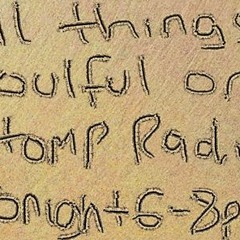 ll things
oulful on
tomp Radi
onight 6-8p